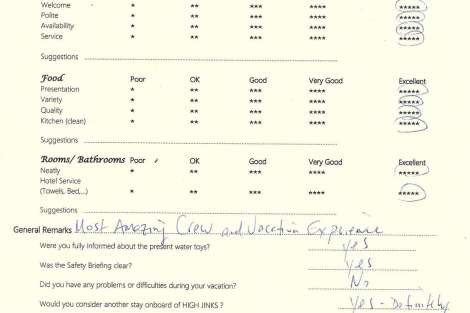 Welcome * ** *** **** *****
Polite * ** *** **** *****
Availability * ** *** **** *****
Service * ** *** **** *****
Suggestions
Food Poor OK Good Very Good Excellent
Presentation * ** *** **** *****
Variety * ** *** **** *****
Quality * ** *** **** *****
Kitchen (clean) * ** *** **** *****
Suggestions
Rooms/ Bathrooms Poor OK Good Very Good Excellent
Neatly * ** *** **** *****
Hotel Service
(Towels, Bed,...) * ** *** **** *****
Suggestions
General Remarks Most Amazing Crew and Vacation Experience
Were you fully informed about the present water toys? Yes
Was the Safety Briefing clear? Yes
Did you have any problems or difficulties during your vacation? No
Would you consider another stay onboard of HIGH JINKS ? Yes - Definitely